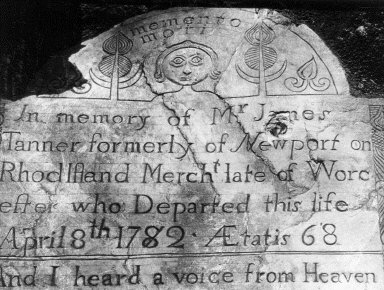 memento
mori
In memory of Mr James
Tanner formerly of Newport on
Rhod Island Mercht late of Worc
ester who Departed this life
April 8th 1782 · Ætatis 68
And I heard a voice from Heaven